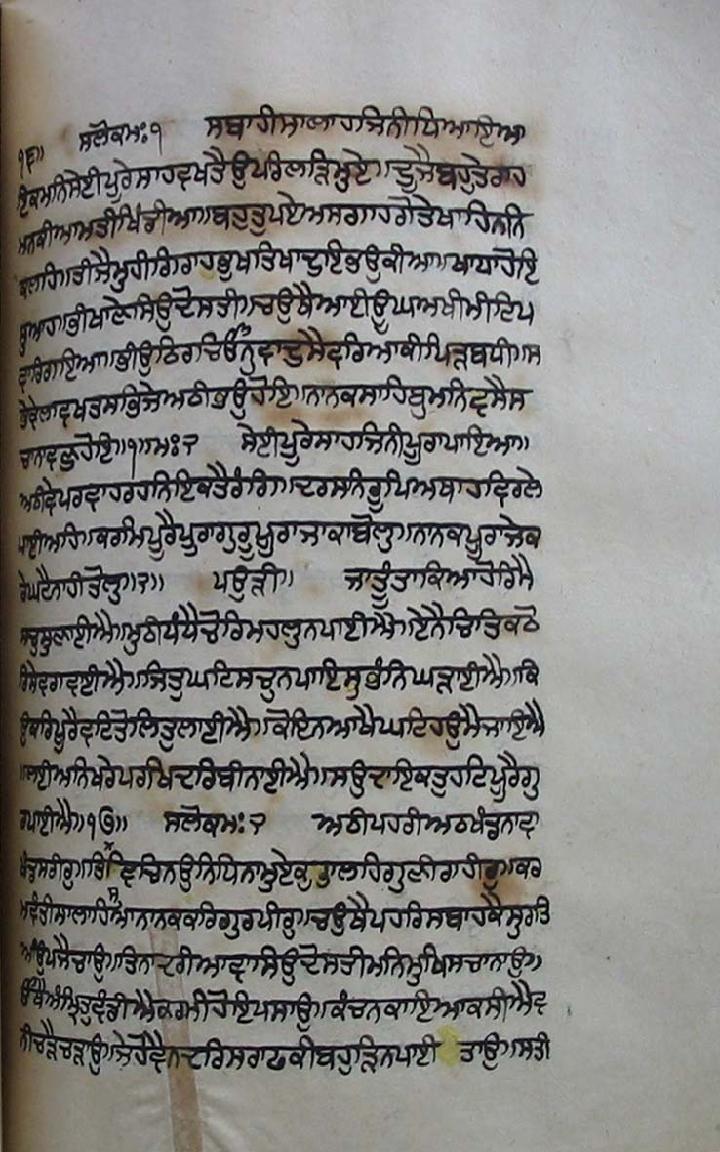 ੧੬॥ ਸਲੋਕਮਃ੧ ਸਬਾਹੀਸਾਲਾਹਜਿਨੀਧਿਆਇਆ
ਇਕਮਨਿਸੇਈਪੂਰੇਸਾਹਵਖਤੈਉਪਰਿਲੜਿਮੁਏ॥ਦੂਜੈਬਹੁਤੇਰਾਹ
ਮਨਕੀਆਮਤੀਖਿੰਡੀਆ॥ਬਹੁਤੁਪਏਅਸਗਾਹਗੋਤੇਖਾਹਿਨਨਿ
ਕਲਾਹਿ॥ਤੀਜੈਮੁਹੀਗਿਰਾਹਭੁਖਤਿਖਾਦੁਇਭਉਕੀਆ॥ਖਾਧਾਹੋਇ
ਸੁਆਹਭੀਖਾਣੇਸਿਉਦੋਸਤੀ॥ਚਉਥੈਆਈਊਘਅਖੀਮੀਟਿਪ
ਵਾਰਿਗਇਆ॥ਭੀਉਠਿਰਚਿਓਨੁਵਾਦੁਸੈਵਰਿਆਕੀਪਿੜਬਧੀ॥ਸ
ਭੇਵੇਲਾਵਖਤਸਭਿਜੇਅਠੀਭਉਹੋਇ॥ਨਾਨਕਸਾਹਿਬੁਮਨਿਵਸੈਸ
ਚਾਨਾਵਣੁਹੋਇ॥੧॥ਮਃ੨ ਸੇਈਪੂਰੇਸਾਹਜਿਨੀਪੂਰਾਪਾਇਆ॥
ਅਠੀਵੇਪਰਵਾਹਰਹਨਿਇਕਤੈਰੰਗਿ॥ਦਰਸਨਿਰੂਪਿਅਥਾਹਵਿਰਲੇ
ਪਾਈਅਹਿ॥ਕਰਮਿਪੂਰੈਪੂਰਾਗੁਰੂਪੂਰਾਜਾਕਾਬੋਲੁ॥ਨਾਨਕਪੂਰਾਜੇਕ
ਰੇਘਟੈਨਾਹੀਤੋਲੁ॥੨॥ ਪਉੜੀ॥ ਜਾਤੂੰਤਾਕਿਆਹੋਰਿਮੈ
ਸਚੁਸੁਣਾਈਐ॥ਮੁਠੀਧੰਧੈਚੋਰਿਮਹਲੁਨਪਾਈਐ॥ਏਨੈਚਿਤਿਕਠੋ
ਰਿਸੇਵਗਵਾਈਐ॥ਜਿਤੁਘਟਿਸਚੁਨਪਾਇਸੁਭੰਨਿਘੜਾਈਐ॥ਕਿ
ਉਕਰਿਪੂਰੈਵਟਿਤੋਲਿਤੁਲਾਈਐ॥ਕੋਇਨਆਖੈਘਟਿਹਉਮੈਜਾਇਐ
॥ਲਈਅਨਿਖਰੇਪਰਖਿਦਰਿਬੀਨਾਈਐ॥ਸਉਦਾਇਕਤੁਹਟਿਪੂਰੈਗੁ
ਰਪਾਈਐ॥੧੭॥ ਸਲੋਕਮਃ੨ ਅਠੀਪਹਰੀਅਠਖੰਡਨਾਵਾ
ਖੰਡੁਸਰੀਰੁ॥ਤਿਸੁਵਿਚਿਨਉਨਿਧਿਨਾਮੁਏਕੁਭਾਲਹਿਗੁਣੀਗਹੀਰੁ॥ਕਰ
ਮਵੰਤੀਸਾਲਾਹਿਆਨਾਨਕਕਰਿਗੁਰਪੀਰੁ॥ਚਉਥੈਪਹਰਿਸਬਾਹਕੈਸੁਰਤਿ
ਆਉਪਜੈਚਾਉ॥ਤਿਨਾਦਰੀਆਵਾਸਿਉਦੋਸਤੀਮਨਿਮੁਖਿਸਚਾਨਾਉ॥
ਓਥੈਅੰਮ੍ਰਿਤੁਵੰਡੀਐਕਰਮੀਹੋਇਪਸਾਉ॥ਕੰਚਨਕਾਇਆਕਸੀਐਵ
ਨੀਚੜੈਚੜਾਉ॥ਜੇਹੋਵੈਨਦਰਿਸਰਾਫਕੀਬਹੁੜਿਨਪਾਈ ਤਾਉ॥ਸਤੀ